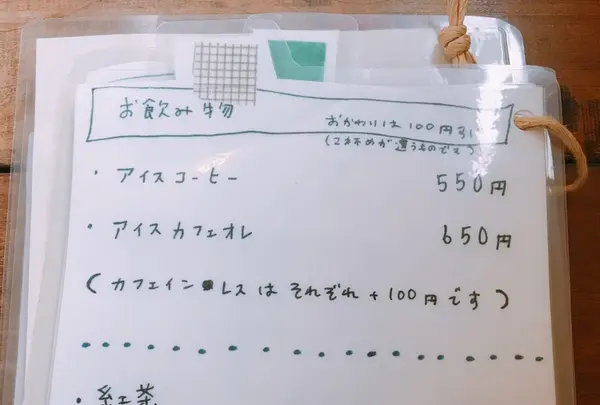 お飲み物
おかわりは100円引
(2杯めが違うものでも)
・アイスコーヒー 550円
・アイスカフェオレ 650円
(カフェインレスはそれぞれ+100円です)
・紅茶